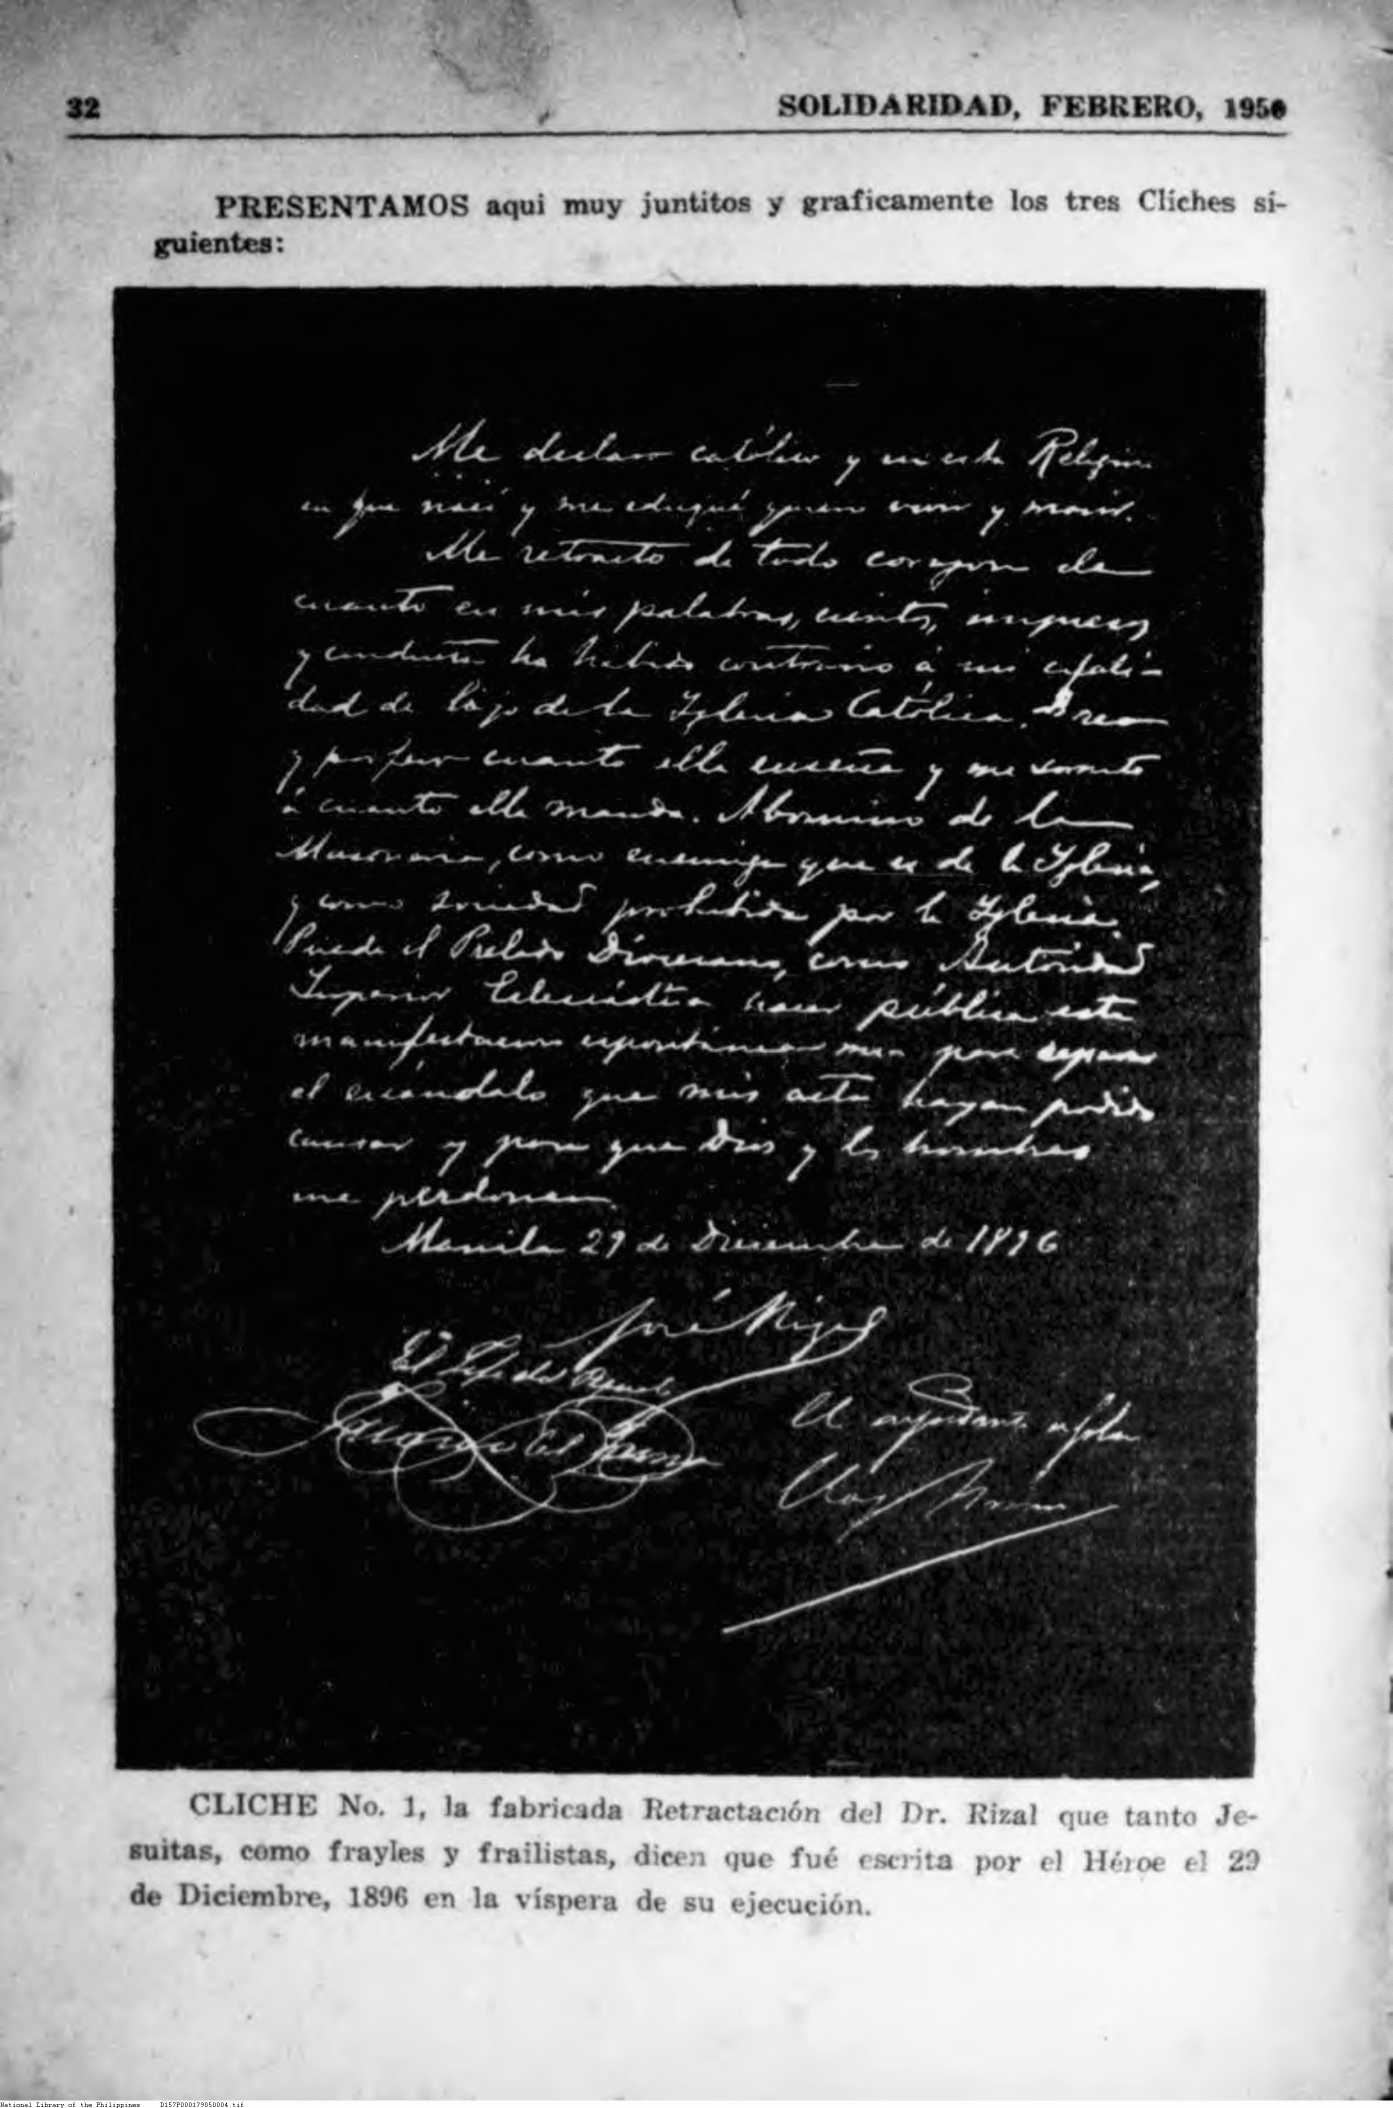 32
SOLIDARIDAD, FEBRERO, 1950
PRESENTAMOS aqui muy juntitos y graficamente los tres Cliches si-
guientes:
Me declaro católico y en esta Religion
en que naci y me eduqué quiero vivir y morir.
Me retracto de todo corazon de
cuanto en mis palabras, escritos, impresos
y conducta ha habido contrario á mi cali-
dad de hijo de la Iglesia Católica. Creo
y profeso cuanto ella enseña y me someto
á cuanto ella manda. Abomino de la
Masoneria, como enemiga que es de la Iglesia,
y como sociedad prohibida por la Iglesia.
Puede el Prelado Diocesano, como Autoridad
Superior Eclesiástica hacer pública esta
manifestacion espontánea mia para reparar
el escándalo que mis actos hayan podido
causar y para que Dios y los hombres
me perdonen.
Manila 29 de Diciembre de 1896
José Rizal
El Jefe del Piquete
El ayudante de Plaza
Juan del Fresno
Eloy Moure
CLICHE No. 1, la fabricada Retractación del Dr. Rizal que tanto Je-
suitas, como frayles y frailistas, dicen que fué escrita por el Héroe el 29
de Diciembre, 1896 en la víspera de su ejecución.
National Library of the Philippines D157P000179050004.tif